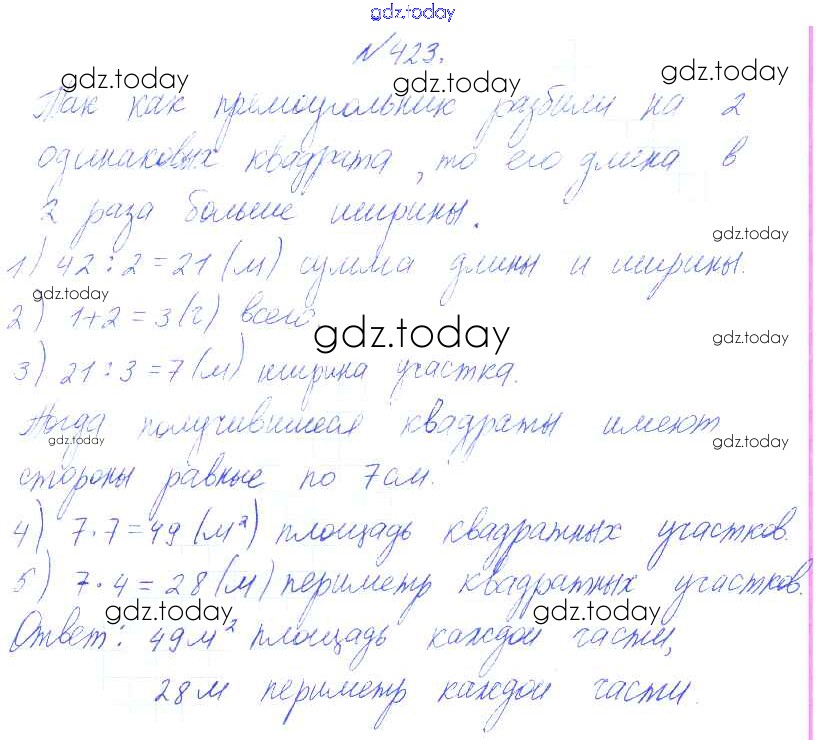 gdz.today
№ 423.
gdz.today gdz.today gdz.today
Так как прямоугольник разбили на 2
одинаковых квадрата, то его длина в
2 раза больше ширины.
gdz.today
1) 42 : 2 = 21 (м) сумма длины и ширины.
gdz.today
2) 1+2 = 3 (ч) всего
gdz.today gdz.today
3) 21 : 3 = 7 (м) ширина участка.
Тогда получившиеся квадраты имеют
gdz.today gdz.today
стороны равные по 7 см.
4) 7 · 7 = 49 (м²) площадь квадратных участков.
5) 7 · 4 = 28 (м) периметр квадратных участков.
gdz.today gdz.today
Ответ: 49 м² площадь каждой части,
28 м периметр каждой части.